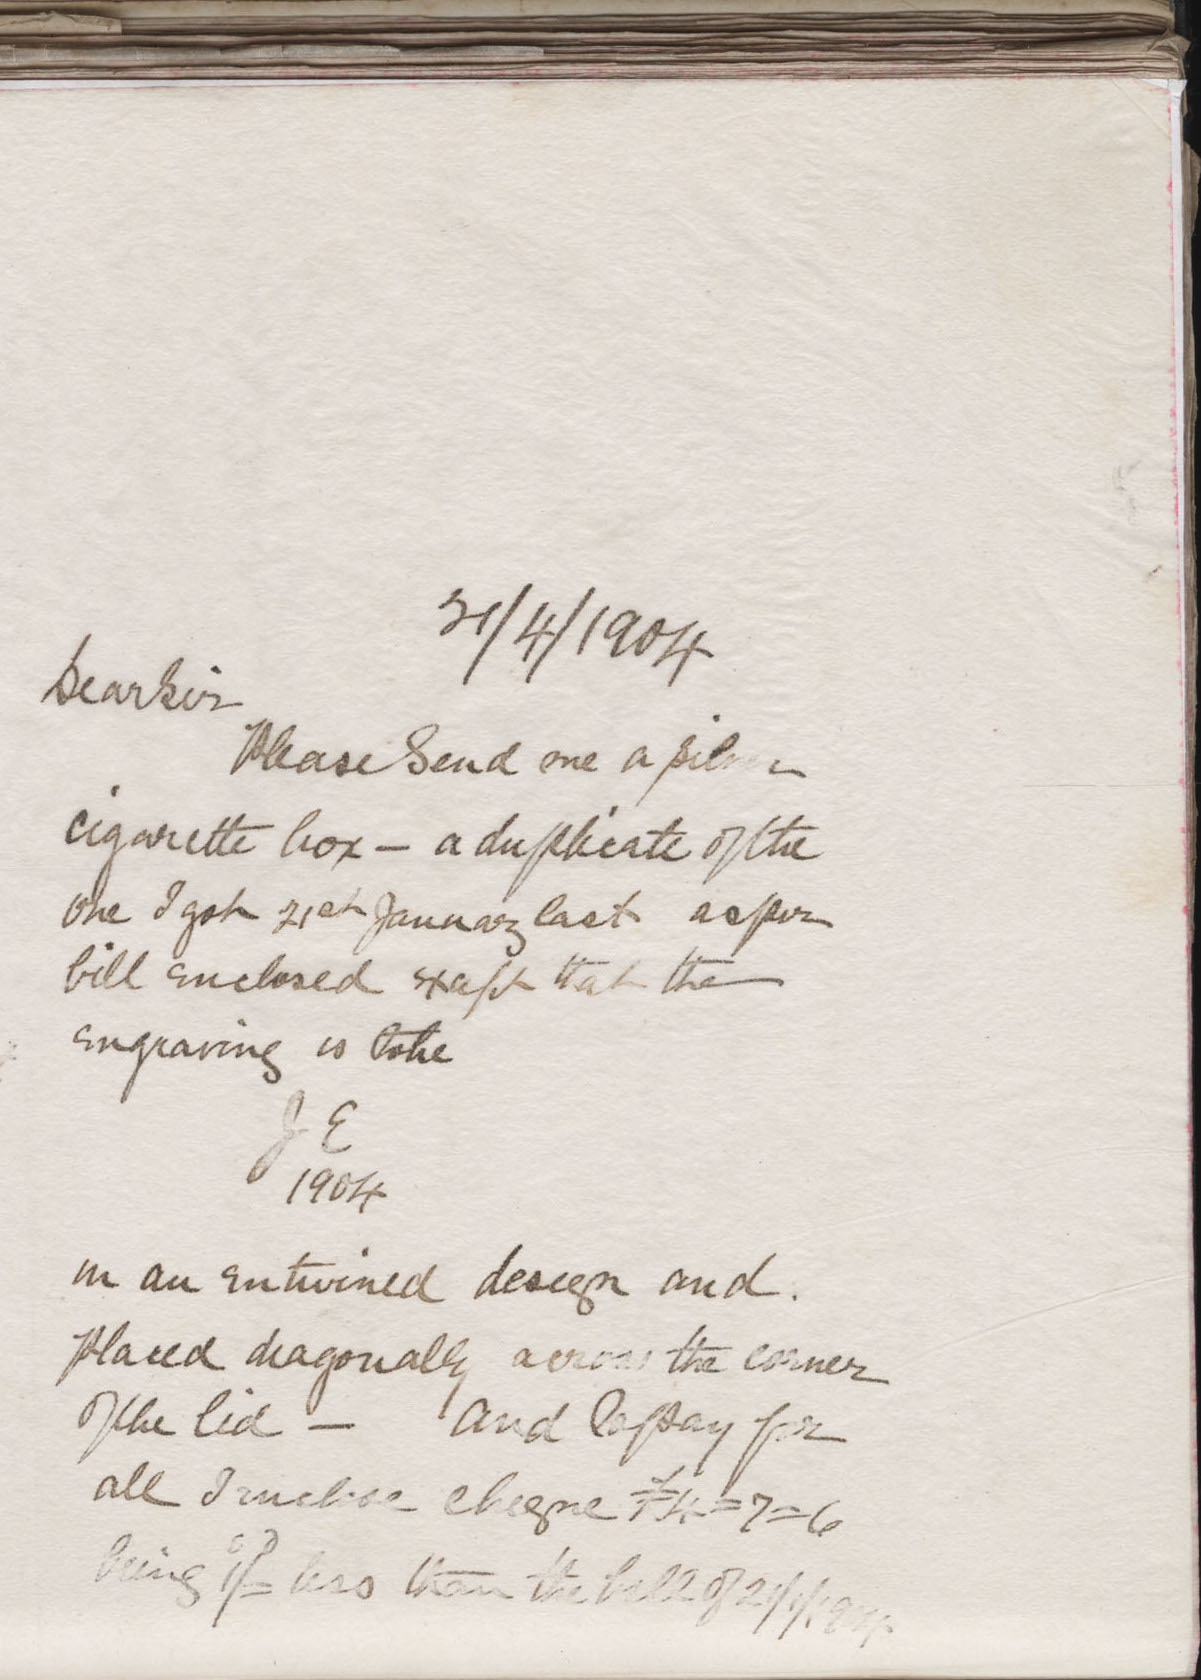 21/4/1904
Dear Sir
Please Send me a silver
cigarette box - a duplicate of the
one I got 21st January last as per
bill enclosed except that the
engraving is to be
J E
1904
in an entwined design and.
placed diagonally across the corner
of the lid - And to pay for
all I enclose cheque £4=7=6
being less than the bill of 21/1/1904